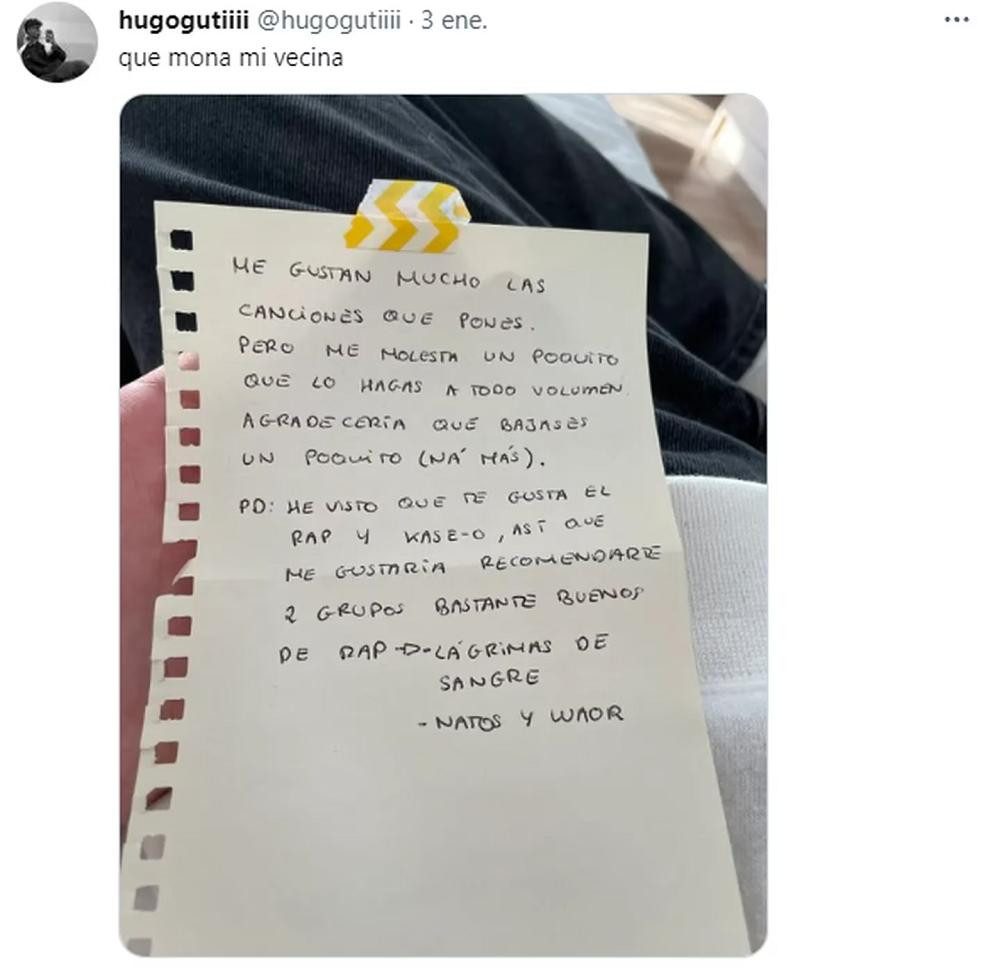 hugogutiiii @hugogutiiii · 3 ene.
que mona mi vecina
ME GUSTAN MUCHO LAS
CANCIONES QUE PONES.
PERO ME MOLESTA UN POQUITO
QUE LO HAGAS A TODO VOLUMEN.
AGRADECERÍA QUE BAJASES
UN POQUITO (NA' MÁS).
PD: HE VISTO QUE TE GUSTA EL
RAP Y KASE-O, ASÍ QUE
ME GUSTARÍA RECOMENDARTE
2 GRUPOS BASTANTE BUENOS
DE RAP → - LÁGRIMAS DE
SANGRE
- NATOS Y WAOR